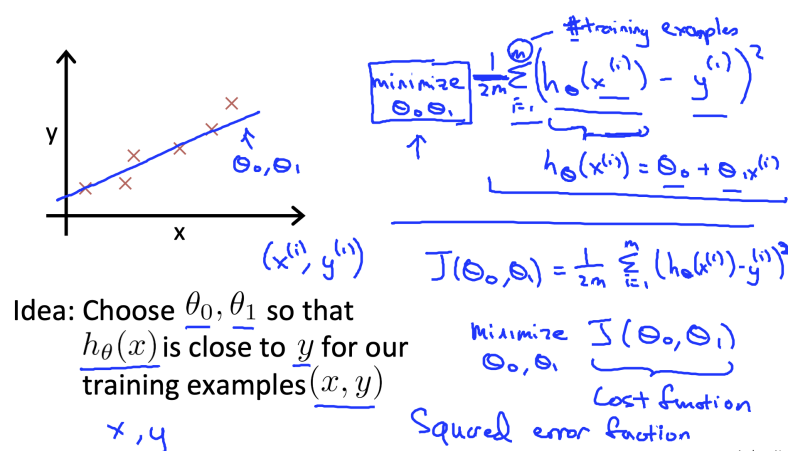 y
x
θ₀, θ₁
(x⁽ⁱ⁾, y⁽ⁱ⁾)
Idea: Choose θ₀, θ₁ so that
h_θ(x) is close to y for our
training examples (x, y)
x, y
#training examples
minimize
θ₀ θ₁
1/2m Σ_{i=1}^{m} (h_θ(x⁽ⁱ⁾) - y⁽ⁱ⁾)²
h_θ(x⁽ⁱ⁾) = θ₀ + θ₁x⁽ⁱ⁾
J(θ₀, θ₁) = 1/2m Σ_{i=1}^{m} (h_θ(x⁽ⁱ⁾) - y⁽ⁱ⁾)²
minimize J(θ₀, θ₁)
θ₀, θ₁
Cost function
Squared error faction